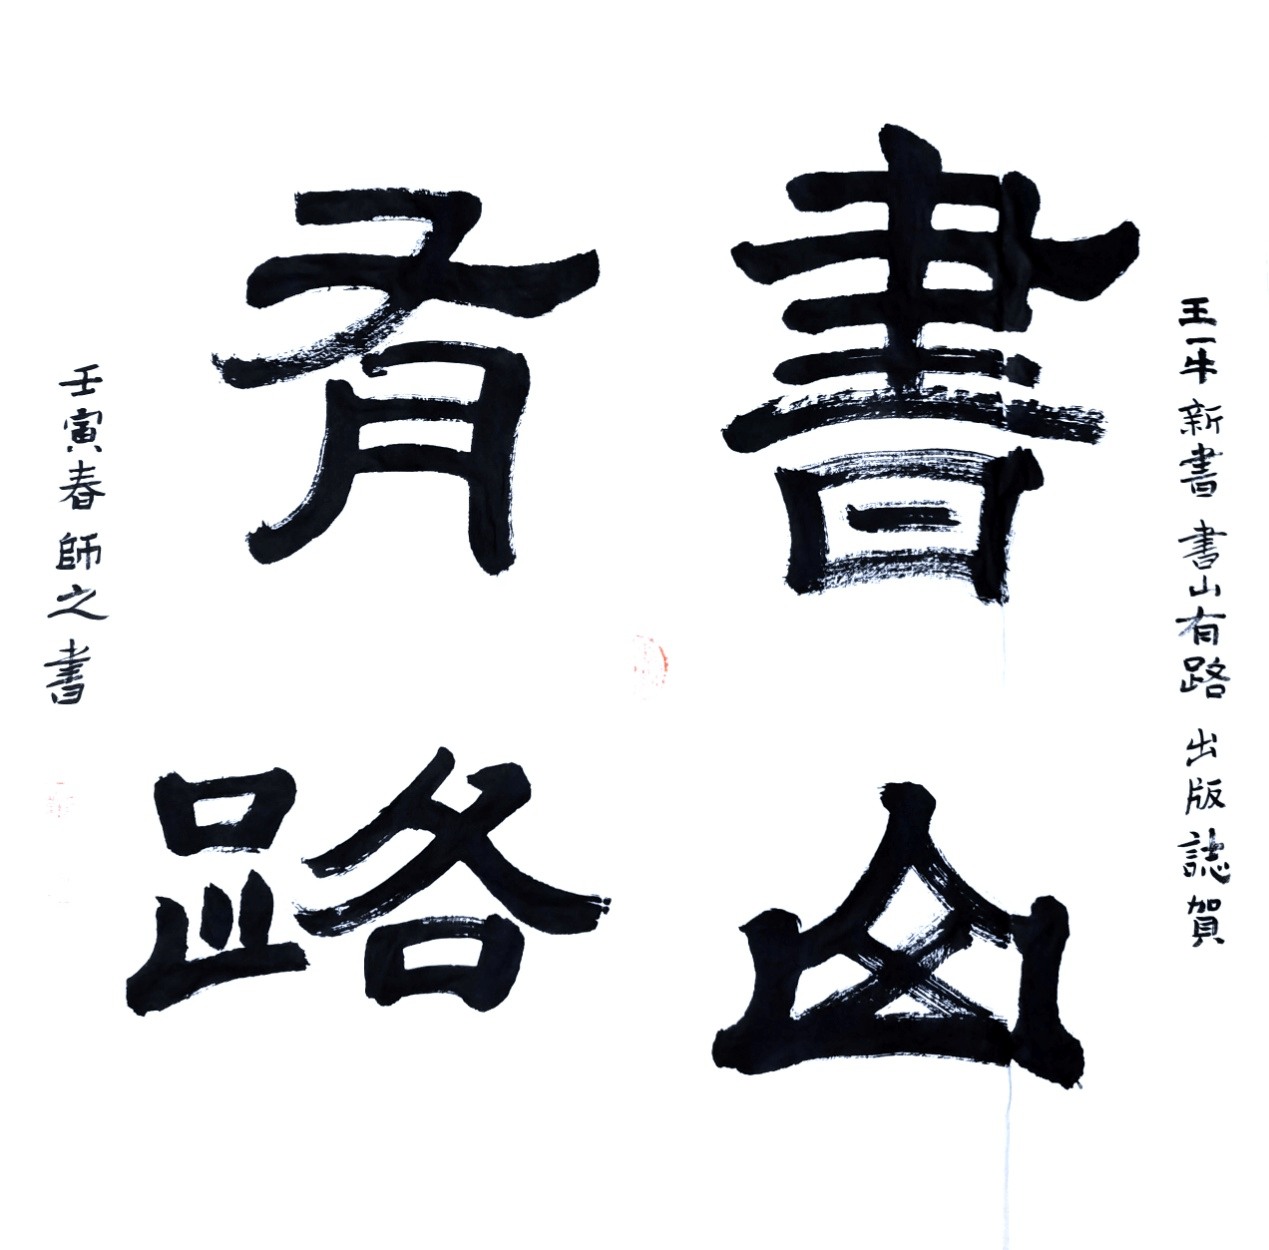 王一牛新書書山有路出版誌賀
書山
有路
壬寅春師之書